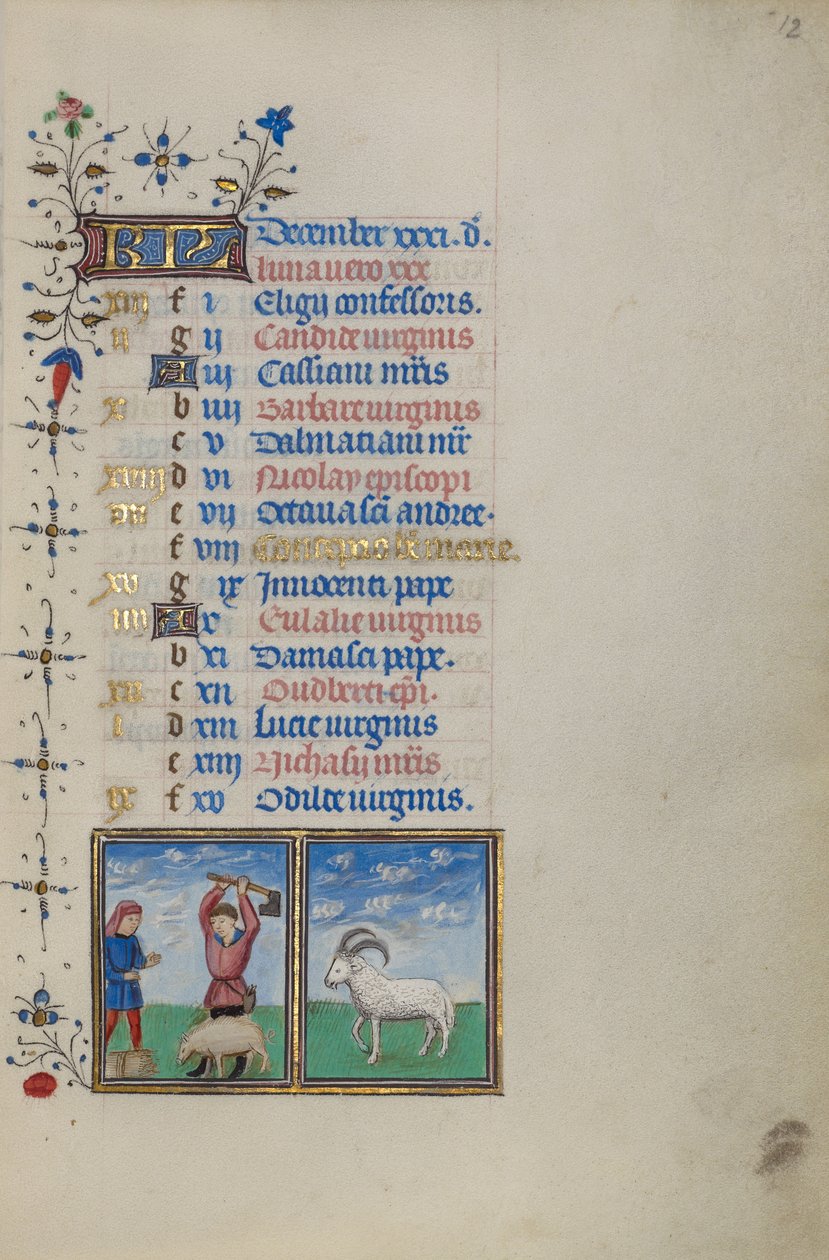 12
KL December xxxi. d.
luna vero xxx
xiij f i Eligij confessoris.
ij g ij Candide uirginis
A iij Cassiani mr̄is
x b iiij Barbare uirginis
c v Dalmatiani mr̄
xviij d vi Nicolay episcopi
vij e vij Octaua scī andree.
f viij Concepcio bē marie.
xv g ix Innocenti pape
iiij A x Eulalie uirginis
b xi Damasci pape.
xij c xij Oudberti ep̄i.
i d xiij Lucie uirginis
e xiiij Nichasij mr̄is
ix f xv Odilde uirginis.